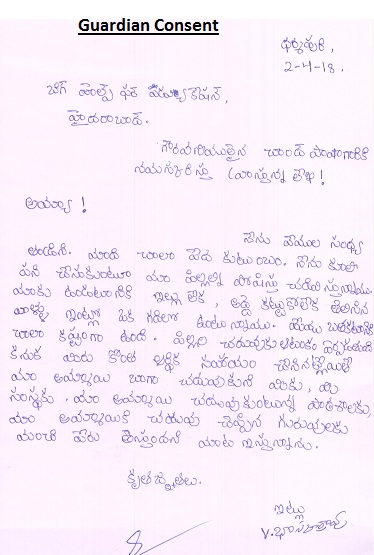 Guardian Consent
ధర్మపురి,
2-4-18.
బిగ్ హెల్ప్ ఫర్ ఎడ్యుకేషన్,
హైదరాబాద్.
గౌరవనీయులైన చాంద్ పాషాగారికి
నమస్కరిస్తు వ్రాస్తున్న లేఖ!
అయ్యా!
నేను వేముల సంధ్య
తండ్రిని. మాది చాలా పేద కుటుంబం. నేను కూలి
పని చేసుకుంటూ మా పిల్లల్ని పోషిస్తు చదివిస్తున్నాను.
మాకు ఉండటానికి ఇల్లు లేక, అద్దె కట్టుకోలేక తెలిసిన
వాళ్ళ ఇంట్లో ఒక గదిలో ఉంటున్నాము. మేము బతకటానికి
చాలా కష్టంగా ఉంది. పిల్లల చదువుకు
కనుక మీరు కొంత ఆర్థిక సహాయం చేసినట్లయితే
మా అమ్మాయి బాగా చదువుకుని మీకు, మీ
సంస్థకు, మా అమ్మాయి చదువుకుంటున్న పాఠశాలకు,
మా అమ్మాయికి చదువు చెప్పిన గురువులకు
మంచి పేరు తెస్తుందని మాట ఇస్తున్నాను.
కృతజ్ఞతలు.
ఇట్లు
V.